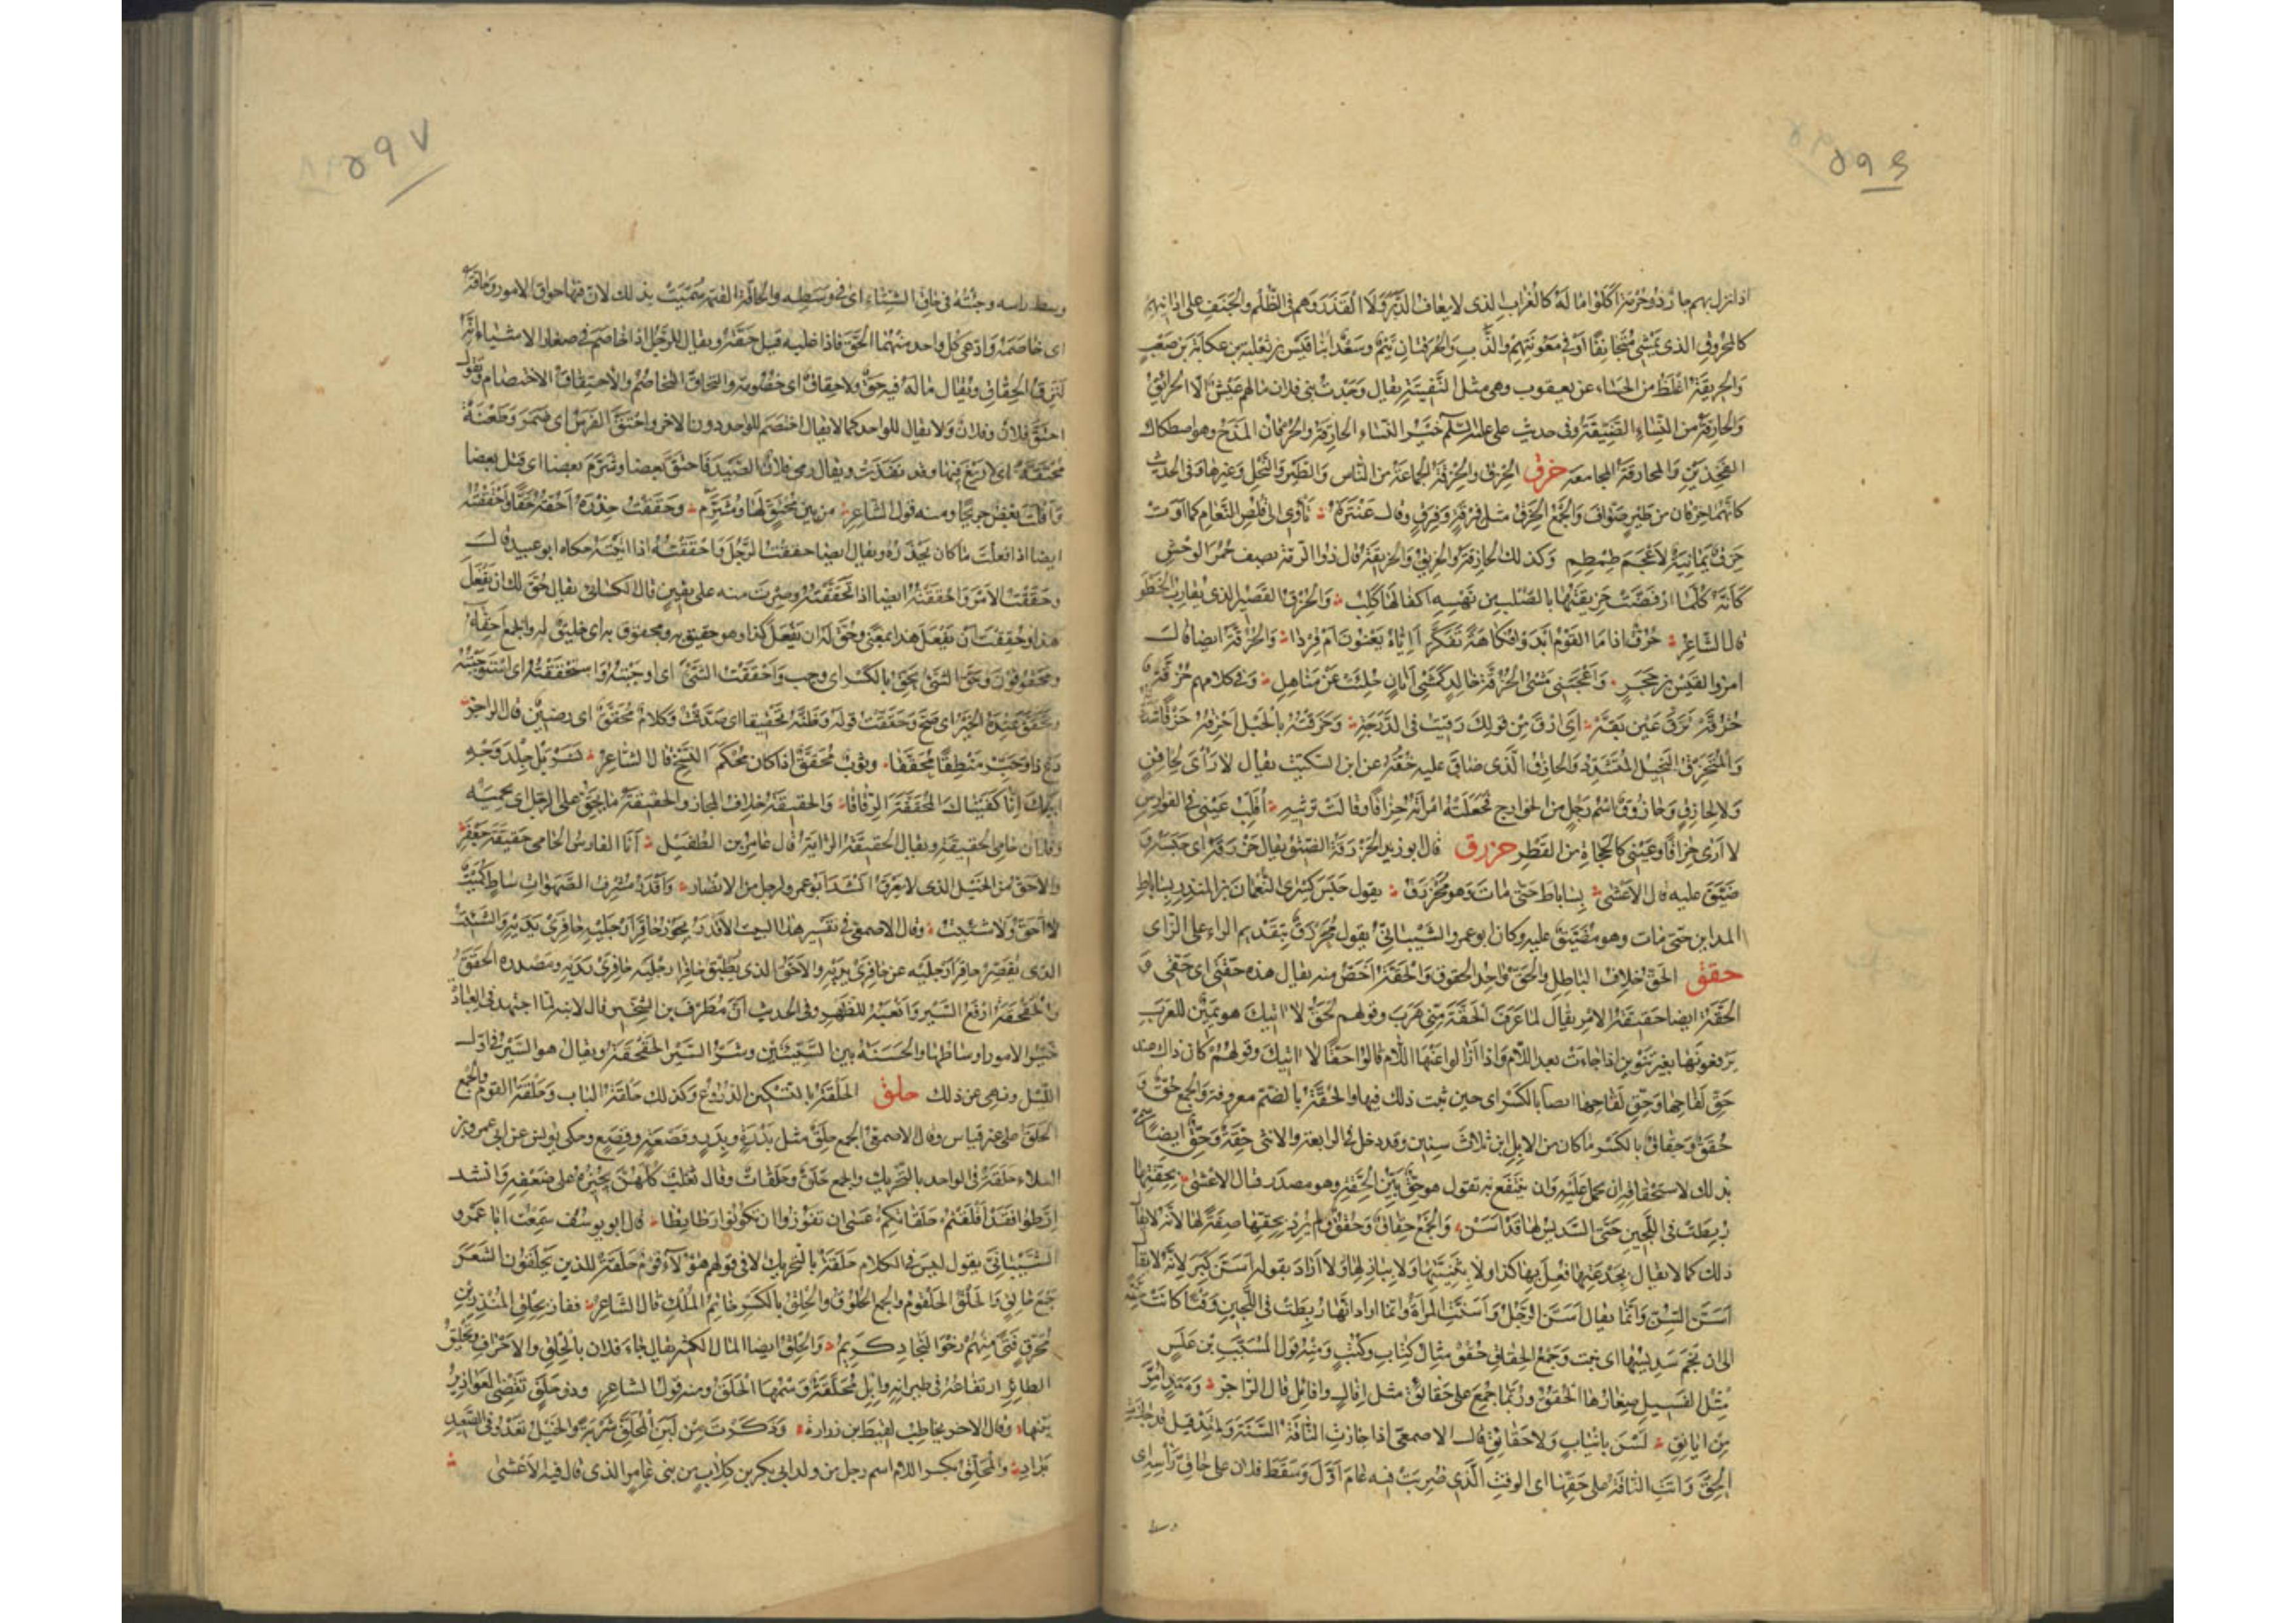 ٥٩٤
اذا نزل بهم ما رذوحرمة اكلوا ماله كالغراب الذى لا يعاف الدبر ولا القذر وهم فى الظلم والجنف على اذانهم
كالمحروق الذى يمشى متجانفا او فى معونتهم والذب والحرقتان تيم وسعد ابنا قيس بن ثعلبة بن عكابة بن صعب
والحريقة اغلظ من الحساء عن يعقوب وهى مثل النفيتة يقال وجدت بنى فلان ما لهم عيش الا الحرائق
والحارقة من النساء الضيقة وفى حديث على عليه السلم خير النساء الحارقة والحرقان المذح وهو اصطكاك
الفخذين والمحارقة المجامعة حزق الحزق والحزقة الجماعة من الناس والطير والنحل وغيرها وفى الحديث
كانهما حزقان من طير صواف والجمع الحزق مثل فرقة وفرق وقال عنترة تاوى الى قلص النعام كما اوت
حزق يمانية لاعجم طمطم وكذلك الحازقة والحزيق والحزيقة قال ذو الرمة يصف حمر الوحش
كانه كلما ارفضت حزيقتها بالصلب من نهسه اكفالها كلب والحزق القصير الذى يقارب الخطو
قال الشاعر حزق اذا ما القوم ابدوا فكاهة تفكر اإياه يعنون ام قردا والحزقة ايضا قال
امرؤ القيس بن حجر واعجبنى مشى الحزقة خالد كمشى اتان حلئت عن مناهل وفى كلامهم حزقة
حزقة ترق عين بقة اى ارق من قولك رقيت فى الدرجة وحزقته بالحبل احزقه حزقا شددته
والمتحزق البخيل المتشدد والحازق الذى ضاق عليه خفه عن ابن السكيت يقال لا راى لحاقن
ولا لحازق وحازوق اسم رجل من الخوارج فجعلته امراته حزاقا وقالت ترثيه اقلب عينى فى الفوارس
لا ارى حزاقا وعينى كالحجاة من القطر حزرق قال ابو زيد الحزرقة الضيق يقال حزرقه اى حبسه و
ضيق عليه قال الاعشى بساباط حتى مات وهو محزرق يقول حبس كسرى النعمان بن المنذر بساباط
المداين حتى مات وهو مضيق عليه وكان ابو عمرو الشيبانى يقول محرزق بتقديم الراء على الزاى
حقق الحق خلاف الباطل والحق واحد الحقوق والحقة اخص منه يقال هذه حقتى اى حقى و
الحقة ايضا حقيقة الامر يقال لما عرف الحقة منى هرب وقولهم لحق لا اتيك هو يمين للعرب
يرفعونها بغير تنوين اذا جاءت بعد اللام واذا ازالوا عنها اللام قالوا حقا لا اتيك وقولهم كان ذاك عند
حق لقاحها وحق لقاحها ايضا بالكسر اى حين ثبت ذلك فيها والحقة بالضم معروفة والجمع حق و
حقق وحقاق بالكسر ما كان من الابل ابن ثلاث سنين وقد دخل فى الرابعة والانثى حقة وحق ايضا سمى
بذلك لاستحقاقه ان يحمل عليه وان ينتفع به تقول هو حق بين الحقة وهو مصدر قال الاعشى بحقتها
ربطت فى اللجين حتى السديس لها قد اسن والجمع حقاق وحقق ولم يرد بحقتها صفة لها لانه لا يقال
ذلك كما لا يقال بجذعتها فعل بها كذا ولا بثنيتها ولا ببازلها ولا اراد بقوله اسن كبر لانه لا يقال
اسن السن وانما يقال اسن الرجل واسنت المراة وانما اراد انها ربطت فى اللجين وقتا كانت حقة
الى ان نجم سديسها اى نبت وجمع الحقاق حقق مثال كتاب وكتب ومنه قول المسيب بن علس
مثل الفسيل صغارها الحقق وربما جمع على حقائق مثل افال وافائل قال الراجز ومسد امر
من ايانق لسن بانياب ولا حقائق قال الاصمعى اذا جازت الناقة السنة ولم تلد قيل قد جازت
الحق واتت الناقة على حقها اى الوقت الذى ضربت فيه عام اول وسقط فلان على حاق راسه اى
وسط
٥٩٧
وسط راسه وجئته فى حاق الشتاء اى فى وسطه والحاقة القيمة سميت بذلك لان فيها حواق الامور وحاقه
اى خاصمه وادعى كل واحد منهما الحق فاذا غلبه قيل حقه ويقال للرجل اذا خاصم فى صغار الاشياء انه
لنزق الحقاق ويقال ماله فيه حق ولا حقاق اى خصومة والتحاق التخاصم والاحتقاق الاختصام وتقول
احتق فلان وفلان ولا يقال للواحد كما لا يقال اختصم للواحد دون الاخر واحتق الفرس اى ضمر وطعنة
محتقة اى لا زيغ فيها وقد نفذت ويقال رمى فلان الصيد فاحتق بعضا وشرم بعضا اى قتل بعضا
وافلت بعض جريحا ومنه قول الشاعر من بين محتق لها ومشرم وحققت حذره احقه حقا واحققته
ايضا اذا فعلت ما كان يحذره ويقال ايضا حققت الرجل واحققته اذا اتيته حكاه ابو عبيد قال
وحققت الامر واحققته ايضا اذا تحققته وصرت منه على يقين قال الكسائى يقال حق لك ان تفعل
هذا وحققت ان تفعل هذا بمعنى وحق له ان يفعل كذا وهو حقيق به ومحقوق به اى خليق له والجمع احقاء
ومحقوقون وحق الشئ يحق بالكسر اى وجب واحققت الشئ اى اوجبته واستحققته اى استوجبته
وتحقق عنده الخبر اى صح وحققت قوله وظنه تحقيقا اى صدقت وكلام محقق اى رصين قال الراجز
دع ذا وحبر منطقا محققا وثوب محقق اذا كان محكم النسج قال الشاعر تسربل جلد وجه
ابيك انا كفيناك المحققة الرقاقا والحقيقة خلاف المجاز والحقيقة ما يحق على الرجل ان يحميه
وفلان حامى الحقيقة ويقال الحقيقة الراية قال عامر بن الطفيل انا الفارس الحامى حقيقة جعفر
والاحق من الخيل الذى لا يعرق انشد ابو عمرو لرجل من الانصار واقدر مشرف الصهوات ساط كميت
لا احق ولا شئيت وقال الاصمعى فى تفسير هذا البيت الاقدر يجوز حافرا رجليه حافرى يديه والشئيت
الذى يقصر حافرا رجليه عن حافرى يديه والاحق الذى يطبق حافرا رجليه حافرى يديه ومصدره الحقق
والحقحقة ارفع السير واتعبه للظهر وفى الحديث ان مطرف بن الشخير قال لابنه لما اجتهد فى العبادة
خير الامور اوساطها والحسنة بين السيئتين وشر السير الحقحقة ويقال هو السير فى اول
الليل ونهى عن ذلك حلق الحلقة بالتسكين الدروع وكذلك حلقة الباب وحلقة القوم والجمع
الحلق على غير قياس وقال الاصمعى الجمع حلق مثل بدرة وبدر وقصعة وقصع وحكى يونس عن ابى عمرو بن
العلاء حلقة فى الواحد بالتحريك والجمع حلق وحلقات وقال ثعلب كلهم يجيزه على ضعفه وانشد
ارطوا فقد اقلقتم حلقاتكم عسى ان تفوزوا ان تكونوا رطائطا قال ابو يوسف سمعت ابا عمرو
الشيبانى يقول ليس فى الكلام حلقة بالتحريك الا فى قولهم هؤلاء قوم حلقة للذين يحلقون الشعر
جمع حالق والحلق الحلقوم والجمع الحلوق والحلق بالكسر خاتم الملك قال الشاعر ففاز بحلق المنذر بن
محرق فتى منهم رخو النجاد كريم والحلق ايضا المال الكثير يقال جاء فلان بالحلق والاحراف وتحليق
الطائر ارتفاعه فى طيرانه وابل محلقة وسمها الحلق ومنه قول الشاعر وذو حلق تقضى العواذير
بينها وقال الاخر يخاطب لقيط بن زرارة وذكرت من لبن المحلق شربة والخيل تعدو فى الصعيد
بداد والمحلق بكسر اللام اسم رجل من ولد ابى بكر بن كلاب من بنى عامر الذى قال فيه الاعشى